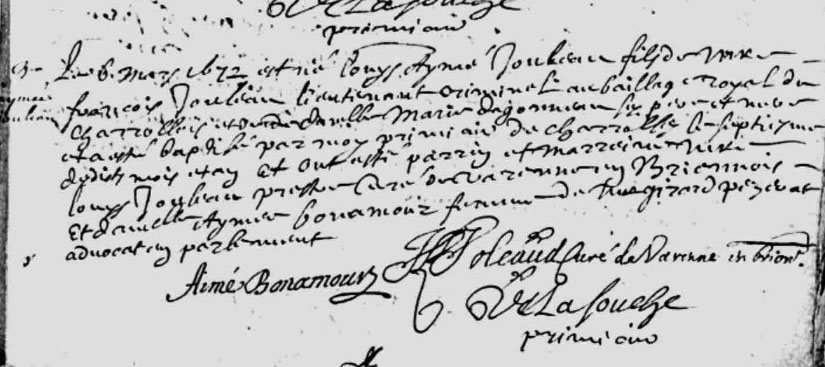 DeLasouche
primiaire
Le 6 mars 1672 est né Louys Aymé Jouleau fils de Mre
françois Jouleau lieutenant criminel au baillage royal du
Charrollois et de delle Marie dagonneau ses pere et mere
et a esté baptisé par moy primiair de charrolle le septiesme
dudit mois et an Et ont esté parrin et marreine Mre
louys Jouleau prestre curé de varenne en Briennois
Et damelle Aymée bonamour femme de Mre girard pezerat
advocat en parlement
Aimé Bonamour Joleaud Curé de Varenne en brion.
DeLasouche
primiair